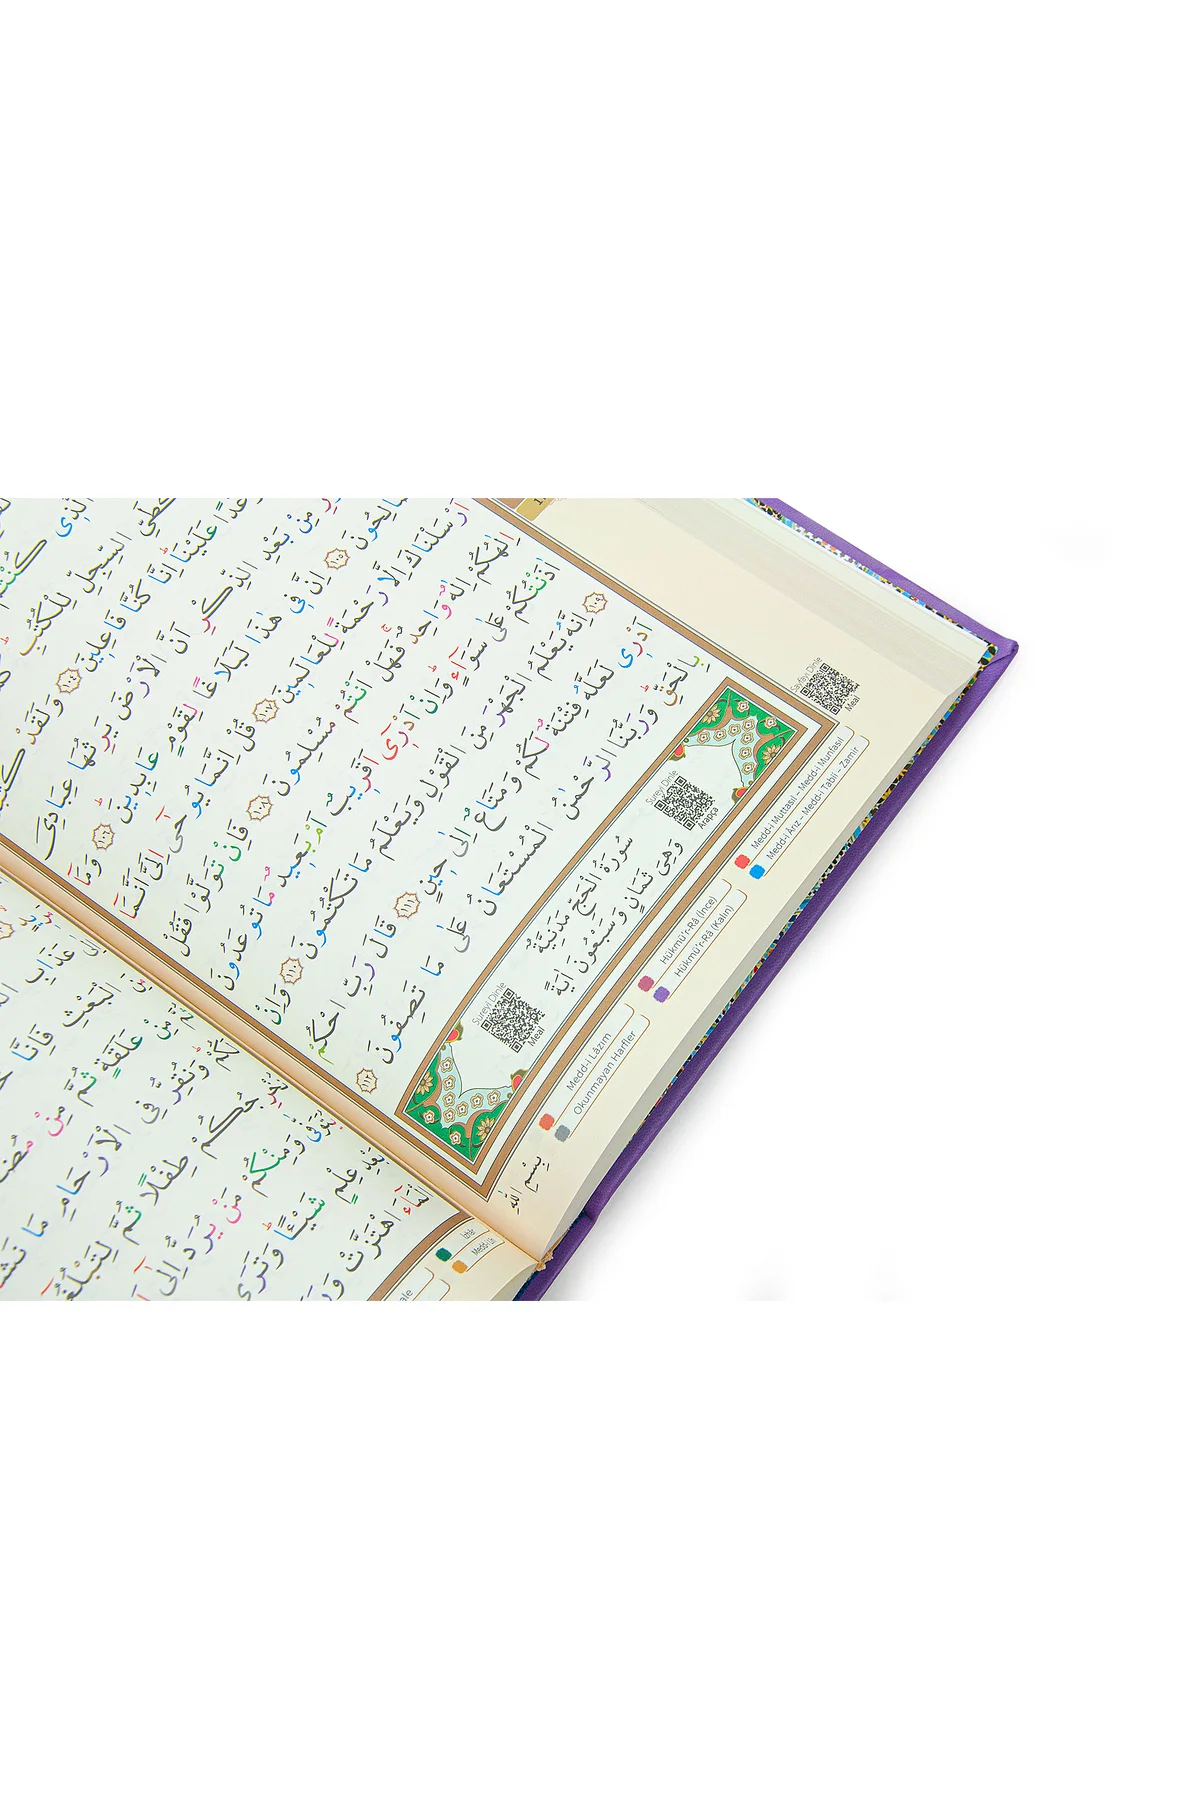 الَّذ۪ى كُنْتُمْ
كَطَيِّ السِّجِلِّ لِلْكُتُبِ
عَلَيْنَا اِنَّا كُنَّا فَاعِل۪ينَ ١٠٤ وَلَقَدْ
مِنْ بَعْدِ الذِّكْرِ اَنَّ الْاَرْضَ يَرِثُهَا عِبَادِىَ
اِنَّ ف۪ى هٰذَا لَبَلَاغًا لِقَوْمٍ عَابِد۪ينَ ١٠٦ وَمَٓا
اَرْسَلْنَاكَ اِلَّا رَحْمَةً لِلْعَالَم۪ينَ ١٠٧ قُلْ اِنَّمَا يُوحٰٓى اِلَىَّ اَنَّمَٓا
اِلٰهُكُمْ اِلٰهٌ وَاحِدٌ فَهَلْ اَنْتُمْ مُسْلِمُونَ ١٠٨ فَاِنْ تَوَلَّوْا فَقُلْ
اٰذَنْتُكُمْ عَلٰى سَوَٓاءٍ وَاِنْ اَدْر۪ٓى اَقَر۪يبٌ اَمْ بَع۪يدٌ مَا تُوعَدُونَ
١٠٩ اِنَّهُ يَعْلَمُ الْجَهْرَ مِنَ الْقَوْلِ وَيَعْلَمُ مَا تَكْتُمُونَ ١١٠ وَاِنْ
اَدْر۪ى لَعَلَّهُ فِتْنَةٌ لَكُمْ وَمَتَاعٌ اِلٰى ح۪ينٍ ١١١ قَالَ رَبِّ احْكُمْ
بِالْحَقِّ وَرَبُّنَا الرَّحْمٰنُ الْمُسْتَعَانُ عَلٰى مَا تَصِفُونَ ١١٢
Sureyi Dinle
Meal
سُورَةُ الْحَجِّ مَدَنِيَّةٌ
وَهِىَ ثَمَانٍ وَسَبْعُونَ اٰيَةً
Sureyi Dinle
Arapça
Sayfayı Dinle
Meal
Medd-i Lâzım
Okunmayan Harfler
Hükmü'r-Râ (İnce)
Hükmü'r-Râ (Kalın)
Medd-i Muttasıl - Medd-i Munfasıl
Medd-i Arız - Medd-i Tabii - Zamir
بِسْمِ اللّٰهِ
الْبَعْثِ فَاِنَّا
مِنْ عَلَقَةٍ ثُمَّ مِنْ
وَنُقِرُّ فِى الْاَرْحَامِ مَا
طِفْلًا ثُمَّ لِتَبْلُغُٓوا
وَمِنْكُمْ مَنْ يُرَدُّ اِلٰٓى
عِلْمٍ شَيْـًٔا وَتَرَى
اهْتَزَّتْ
İzhâr
Medd-i Lîn